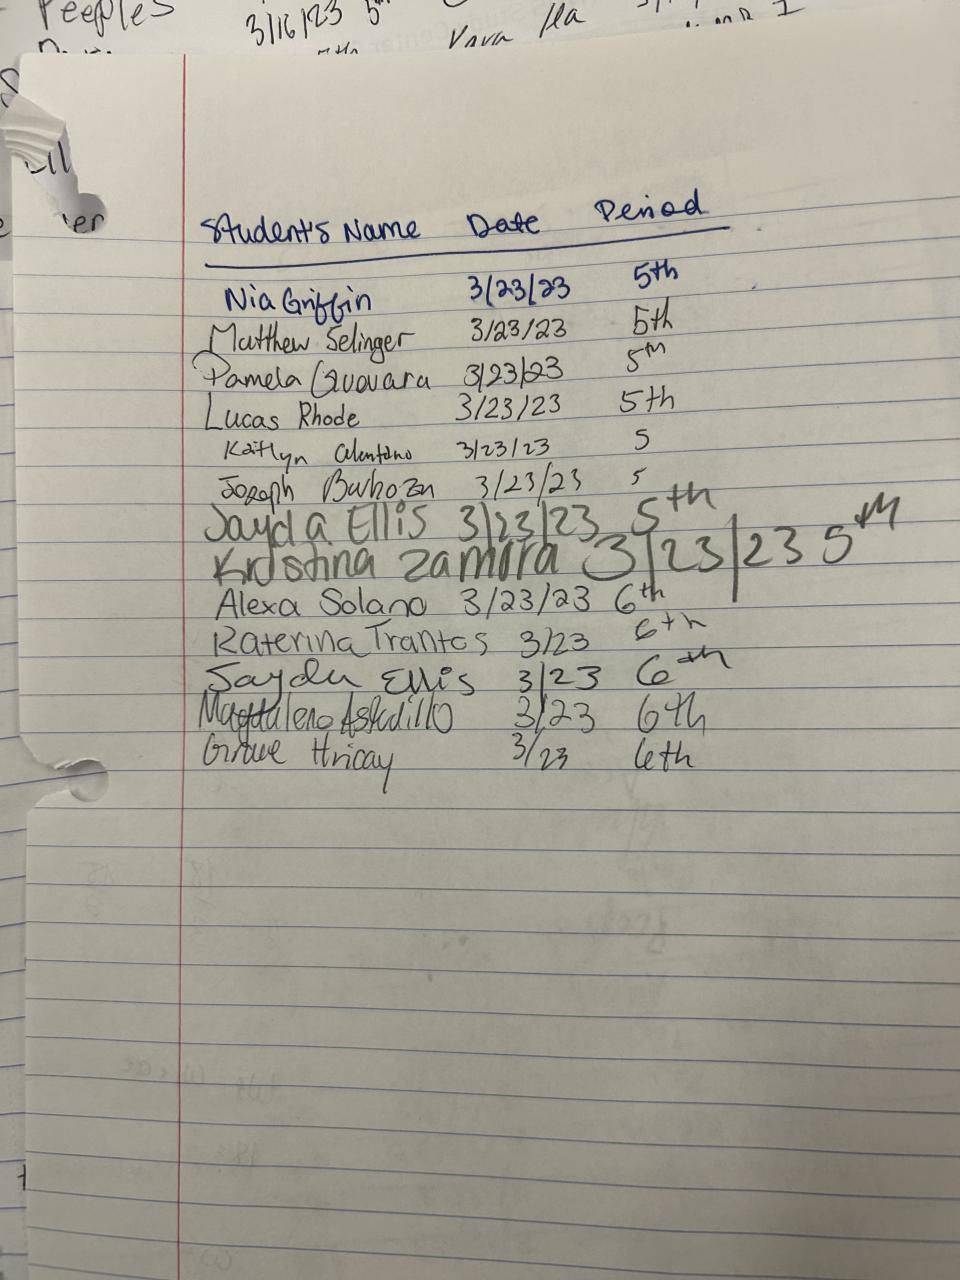 Peeples 3/16/23 5th
Student's Name Date Period
Nia Griffin 3/23/23 5th
Matthew Selinger 3/23/23 5th
Pamela Guevara 3/23/23 5th
Lucas Rhode 3/23/23 5th
Kaitlyn 3/23/23 5
Joseph Barboza 3/23/23 5
Jayda Ellis 3/23/23 5th
Kristina Zamora 3/23/23 5th
Alexa Solano 3/23/23 6th
Katerina Trantos 3/23 6th
Jayda Ellis 3/23 6th
Magdaleno 3/23 6th
Hricay 3/23 6th